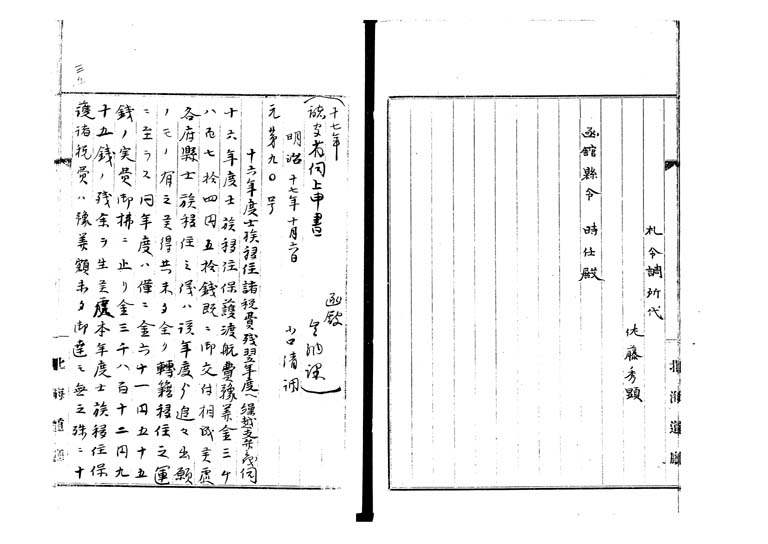 札令調所代
佐藤秀顕
函館縣令 時任殿
北海道廳
十七年
諸文省伺上申書
函館
出納課
明治十七年十月六日
小口清調
元第九〇号
十六年度士族移住諸税費残翌年度ヘ繰越支弁之義伺
十六年度士族移住保護渡航費豫算金三千
八百七拾四円五拾銭既ニ御交付相成候処
各府縣士族移住之儀ハ該年度ゟ追々出願
ノモノ有之候得共未タ全ク轉籍移住之運
ニ至ラス同年度ハ僅ニ金六十一円五十五
銭ノ実費御拂ニ止リ金三千八百十二円九
十五銭ノ残余ヲ生シ候處本年度士族移住保
護諸税費ハ豫算額未タ御達モ無之殊ニ十
北海道廳